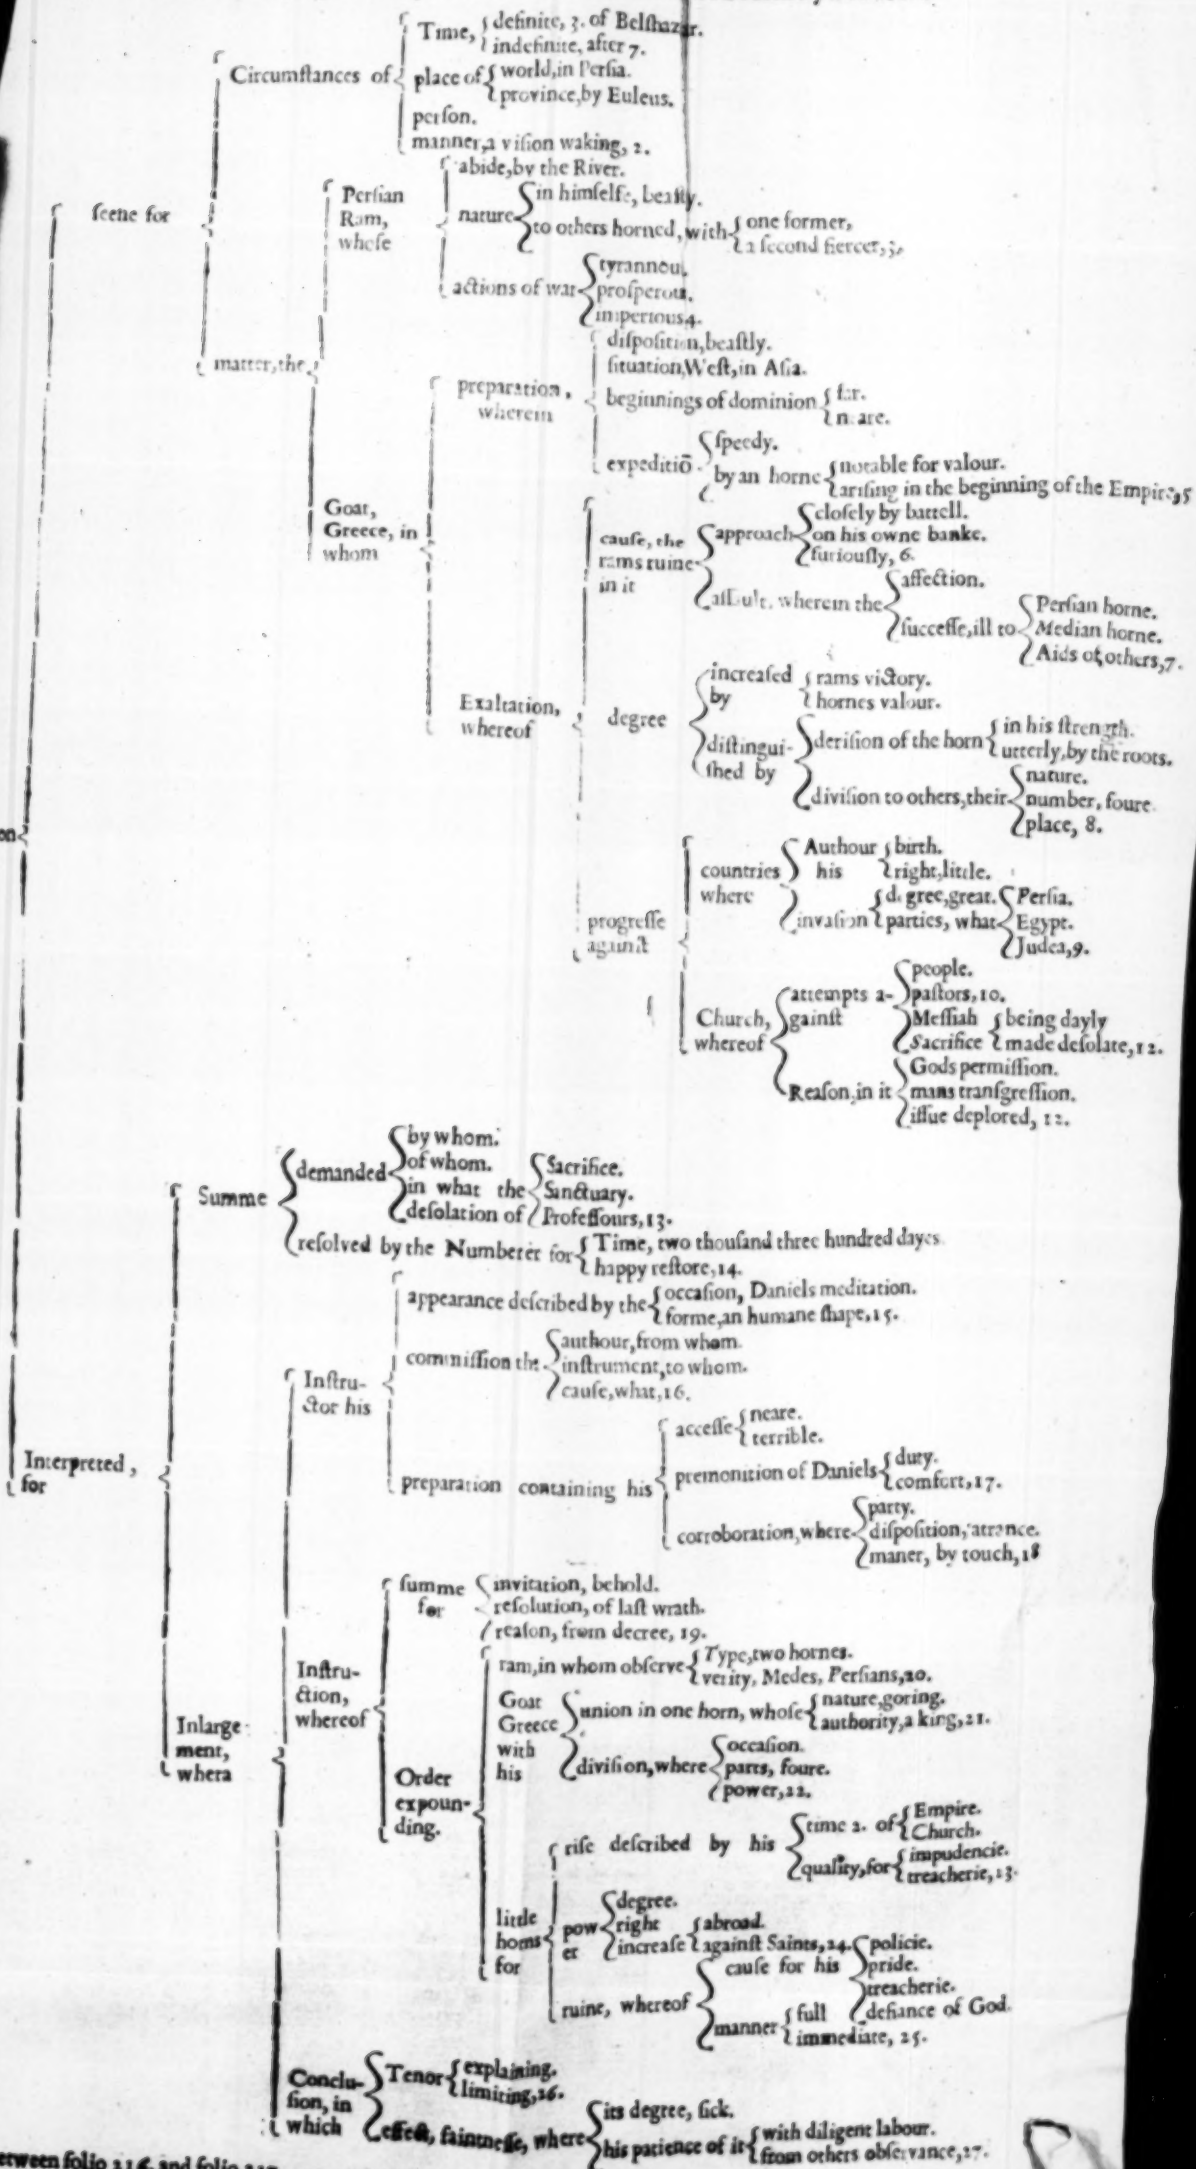 Time, { definite, 3. of Belſhazar.
indefinite, after 7.
Circumſtances of
place of { world, in Perſia.
province, by Euleus.
perſon.
manner, a viſion waking, 2.
abide, by the River.
Perſian
Ram,
whoſe
nature { in himſelfe, beaſtly.
ſcene for
to others horned, with { one former,
a ſecond fiercer, 3.
actions of war { tyrannous.
proſperous.
imperious 4.
matter, the
diſpoſition, beaſtly.
ſituation, Weſt, in Aſia.
preparation,
wherein
beginnings of dominion { far.
neare.
expeditiō { ſpeedy.
by an horne { notable for valour.
ariſing in the beginning of the Empire, 5
Goat,
Greece, in
whom
cauſe, the
rams ruine
in it
approach { cloſely by battell.
on his owne banke.
furiouſly, 6.
aſſault, wherein the { affection.
ſucceſſe, ill to { Perſian horne.
Median horne.
Aids of others, 7.
Exaltation,
whereof
degree
increaſed
by
{ rams victory.
hornes valour.
diſtingui-
ſhed by
deriſion of the horn { in his ſtrength.
utterly, by the roots.
diviſion to others, their { nature.
number, foure
place, 8.
on
progreſſe
againſt
countries
where
Authour
his
{ birth.
right, little.
invaſion { degree, great.
parties, what { Perſia.
Egypt.
Judea, 9.
Church,
whereof
attempts a-
gainſt
{ people.
paſtors, 10.
Meſſiah { being dayly
Sacrifice { made deſolate, 12.
Reaſon, in it { Gods permiſſion.
mans tranſgreſſion.
iſſue deplored, 12.
Summe
demanded { by whom.
of whom.
in what the
deſolation of
{ Sacrifice.
Sanctuary.
Profeſſours, 13.
reſolved by the Numberer for { Time, two thouſand three hundred dayes
happy reſtore, 14.
Interpreted,
for
Inſtru-
ctor his
appearance deſcribed by the { occaſion, Daniels meditation.
forme, an humane ſhape, 15.
commiſſion the { authour, from whom.
inſtrument, to whom.
cauſe, what, 16.
preparation containing his
acceſſe { neare.
terrible.
premonition of Daniels { duty.
comfort, 17.
corroboration, where { party.
diſpoſition, a trance.
maner, by touch, 18
Inlarge-
ment,
whera
Inſtru-
ction,
whereof
ſumme
for
{ invitation, behold.
reſolution, of laſt wrath.
reaſon, from decree, 19.
Order
expoun-
ding.
ram, in whom obſerve { Type, two hornes.
verity, Medes, Perſians, 20.
Goat
Greece
with
his
union in one horn, whoſe { nature, goring.
authority, a king, 21.
diviſion, where { occaſion.
parts, foure.
power, 22.
little
horns
for
riſe deſcribed by his { time 2. of { Empire.
Church.
quality, for { impudencie.
treacherie, 23.
pow
er
{ degree.
right
increaſe { abroad.
againſt Saints, 24.
ruine, whereof
cauſe for his { policie.
pride.
treacherie.
defiance of God.
manner { full
immediate, 25.
Conclu-
ſion, in
which
Tenor { explaining.
limiting, 26.
effect, faintneſſe, where { its degree, ſick.
his patience of it { with diligent labour.
from others obſervance, 27.
etween folio 216. and folio